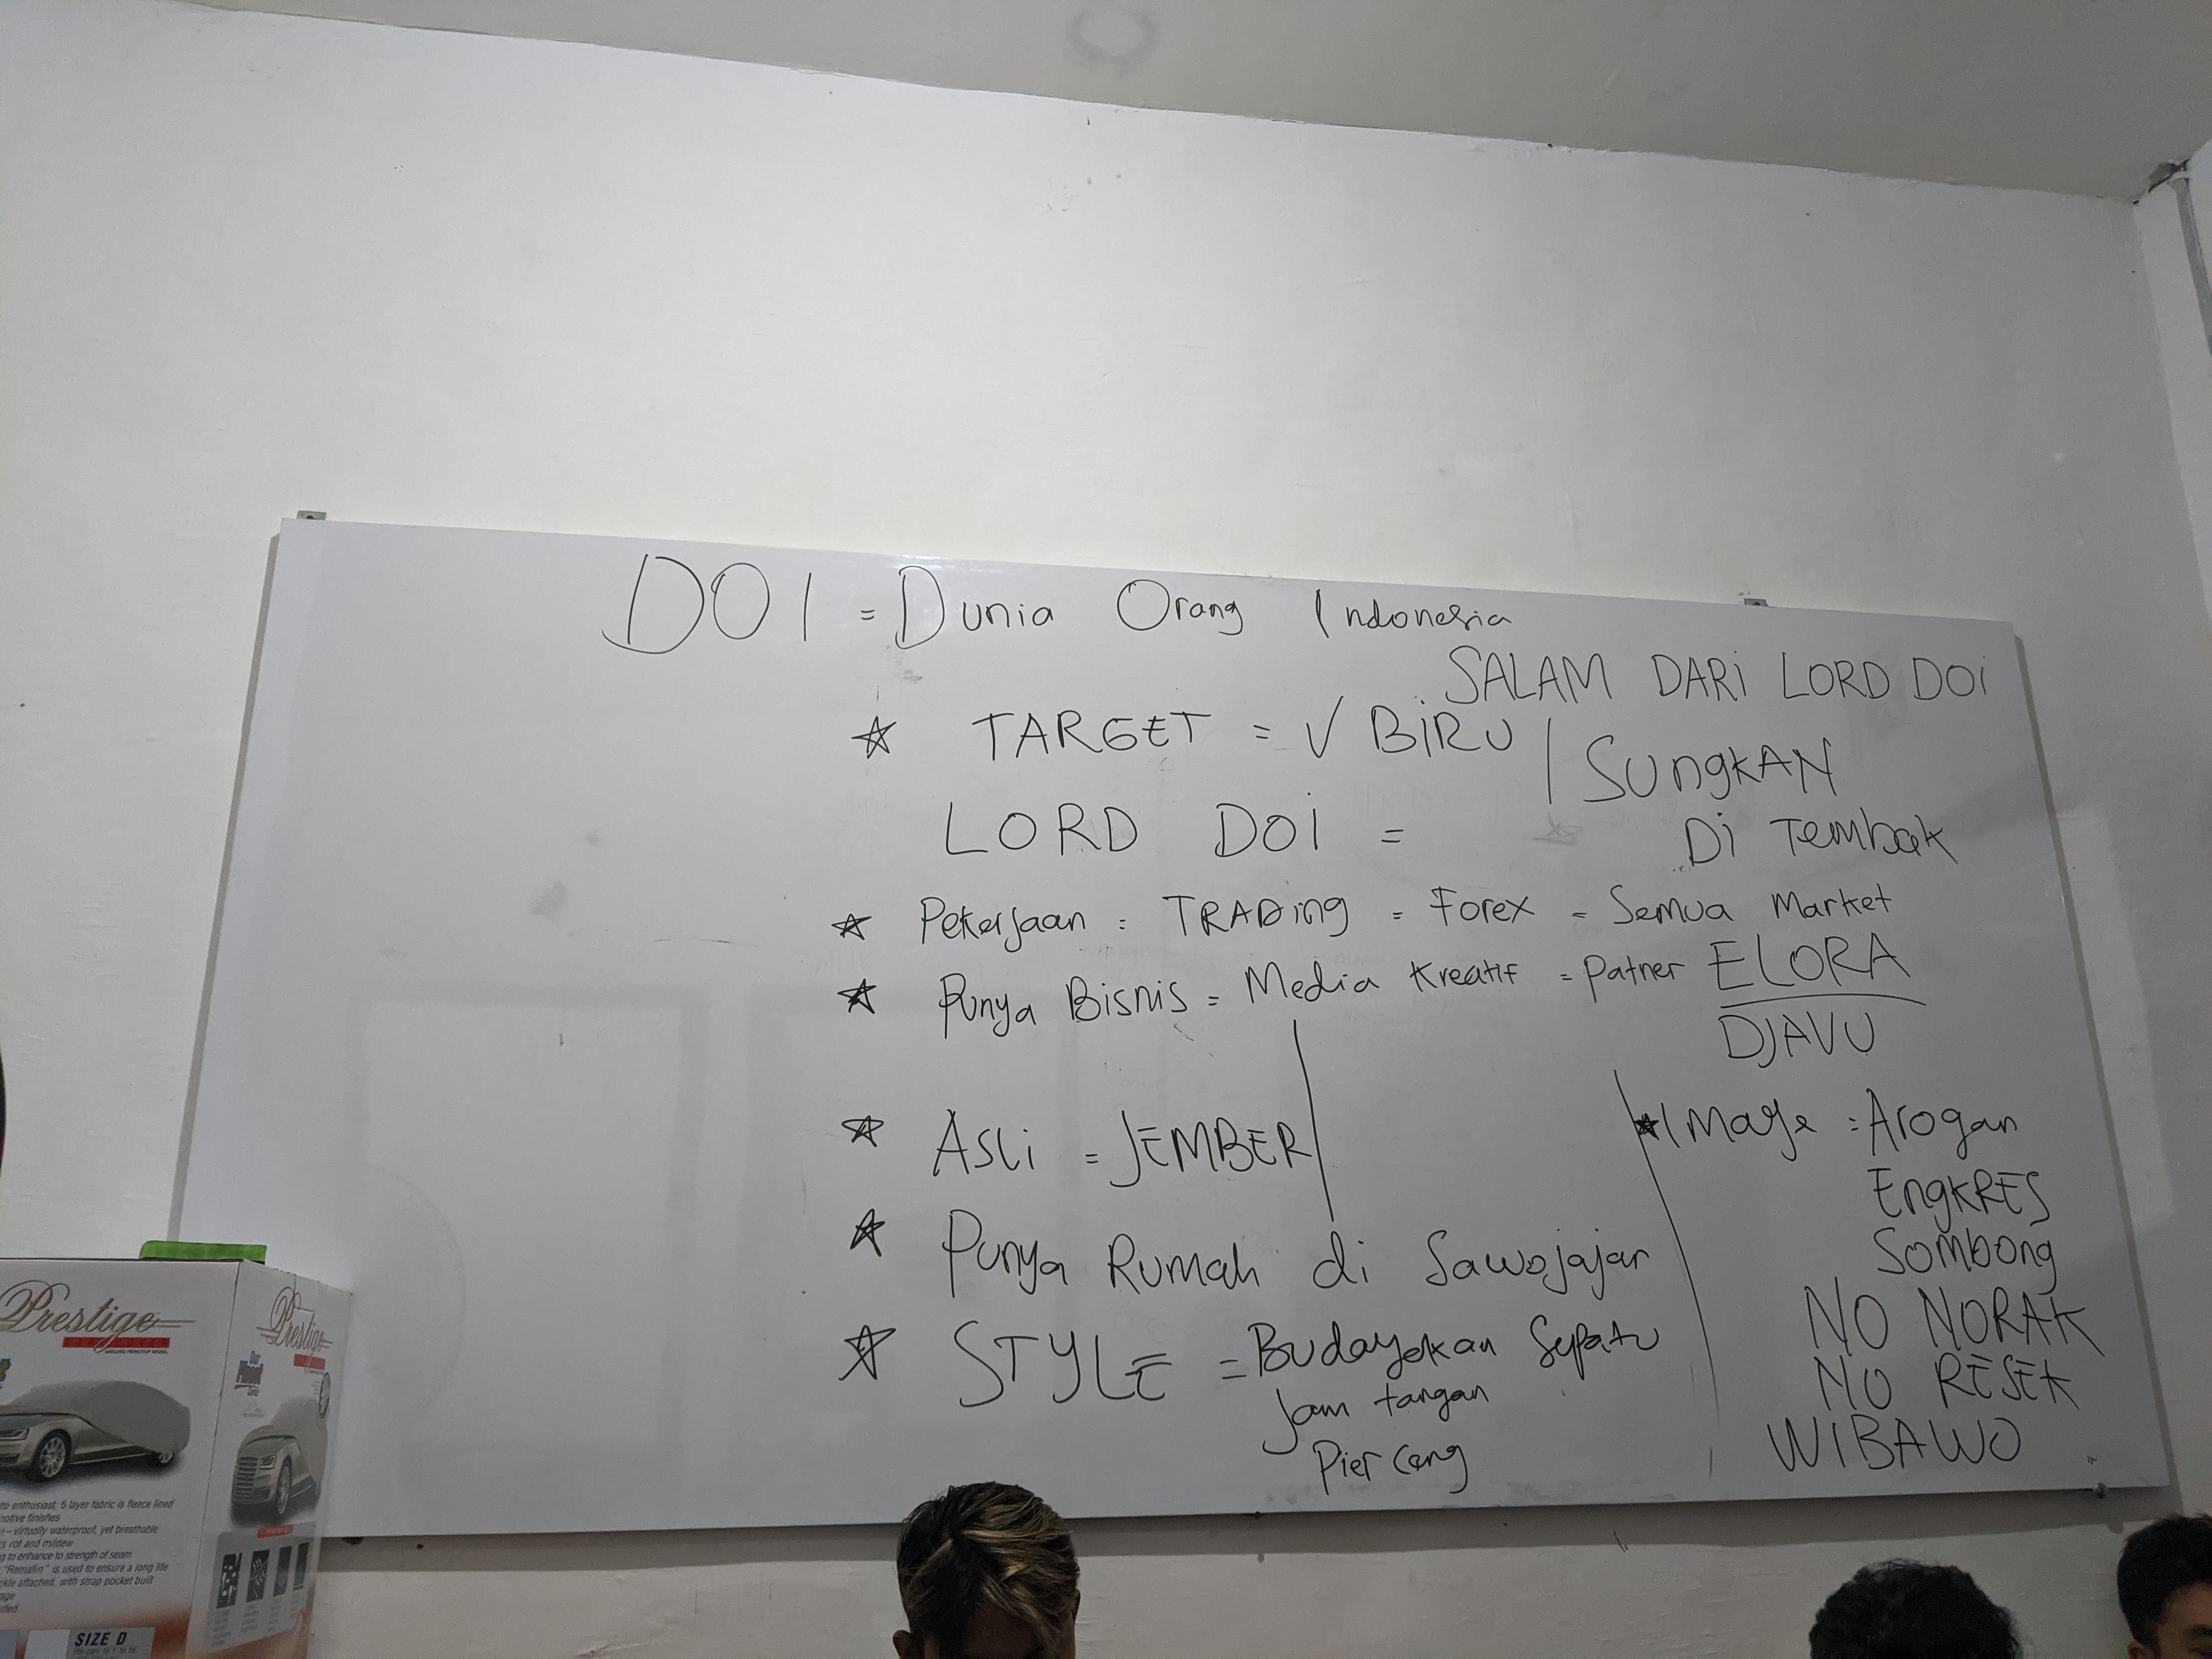 DOI = Dunia Orang Indonesia
SALAM DARI LORD DOI
☆ TARGET = √ BIRU / SUNGKAN
Di Tembak
LORD DOI =
☆ Pekerjaan = TRADING = Forex = Semua Market
☆ Punya Bisnis = Media Kreatif = Patner ELORA
DJAVU
☆ Asli = JEMBER
☆ Punya Rumah di Sawojajar
☆ STYLE = Budayakan Sepatu
Jam tangan
Piercang
★ Image = Arogan
EngKRES
Sombong
NO NORAK
NO RESEK
WIBAWO
Prestige
Prestige
to enthusiast. 5 layer fabric is fleece lined
motive finishes
– virtually waterproof, yet breathable
rs rot and mildew
g to enhance to strength of seam
"Remafin" is used to ensure a long life
ckle attached, with strap pocket built
SIZE D